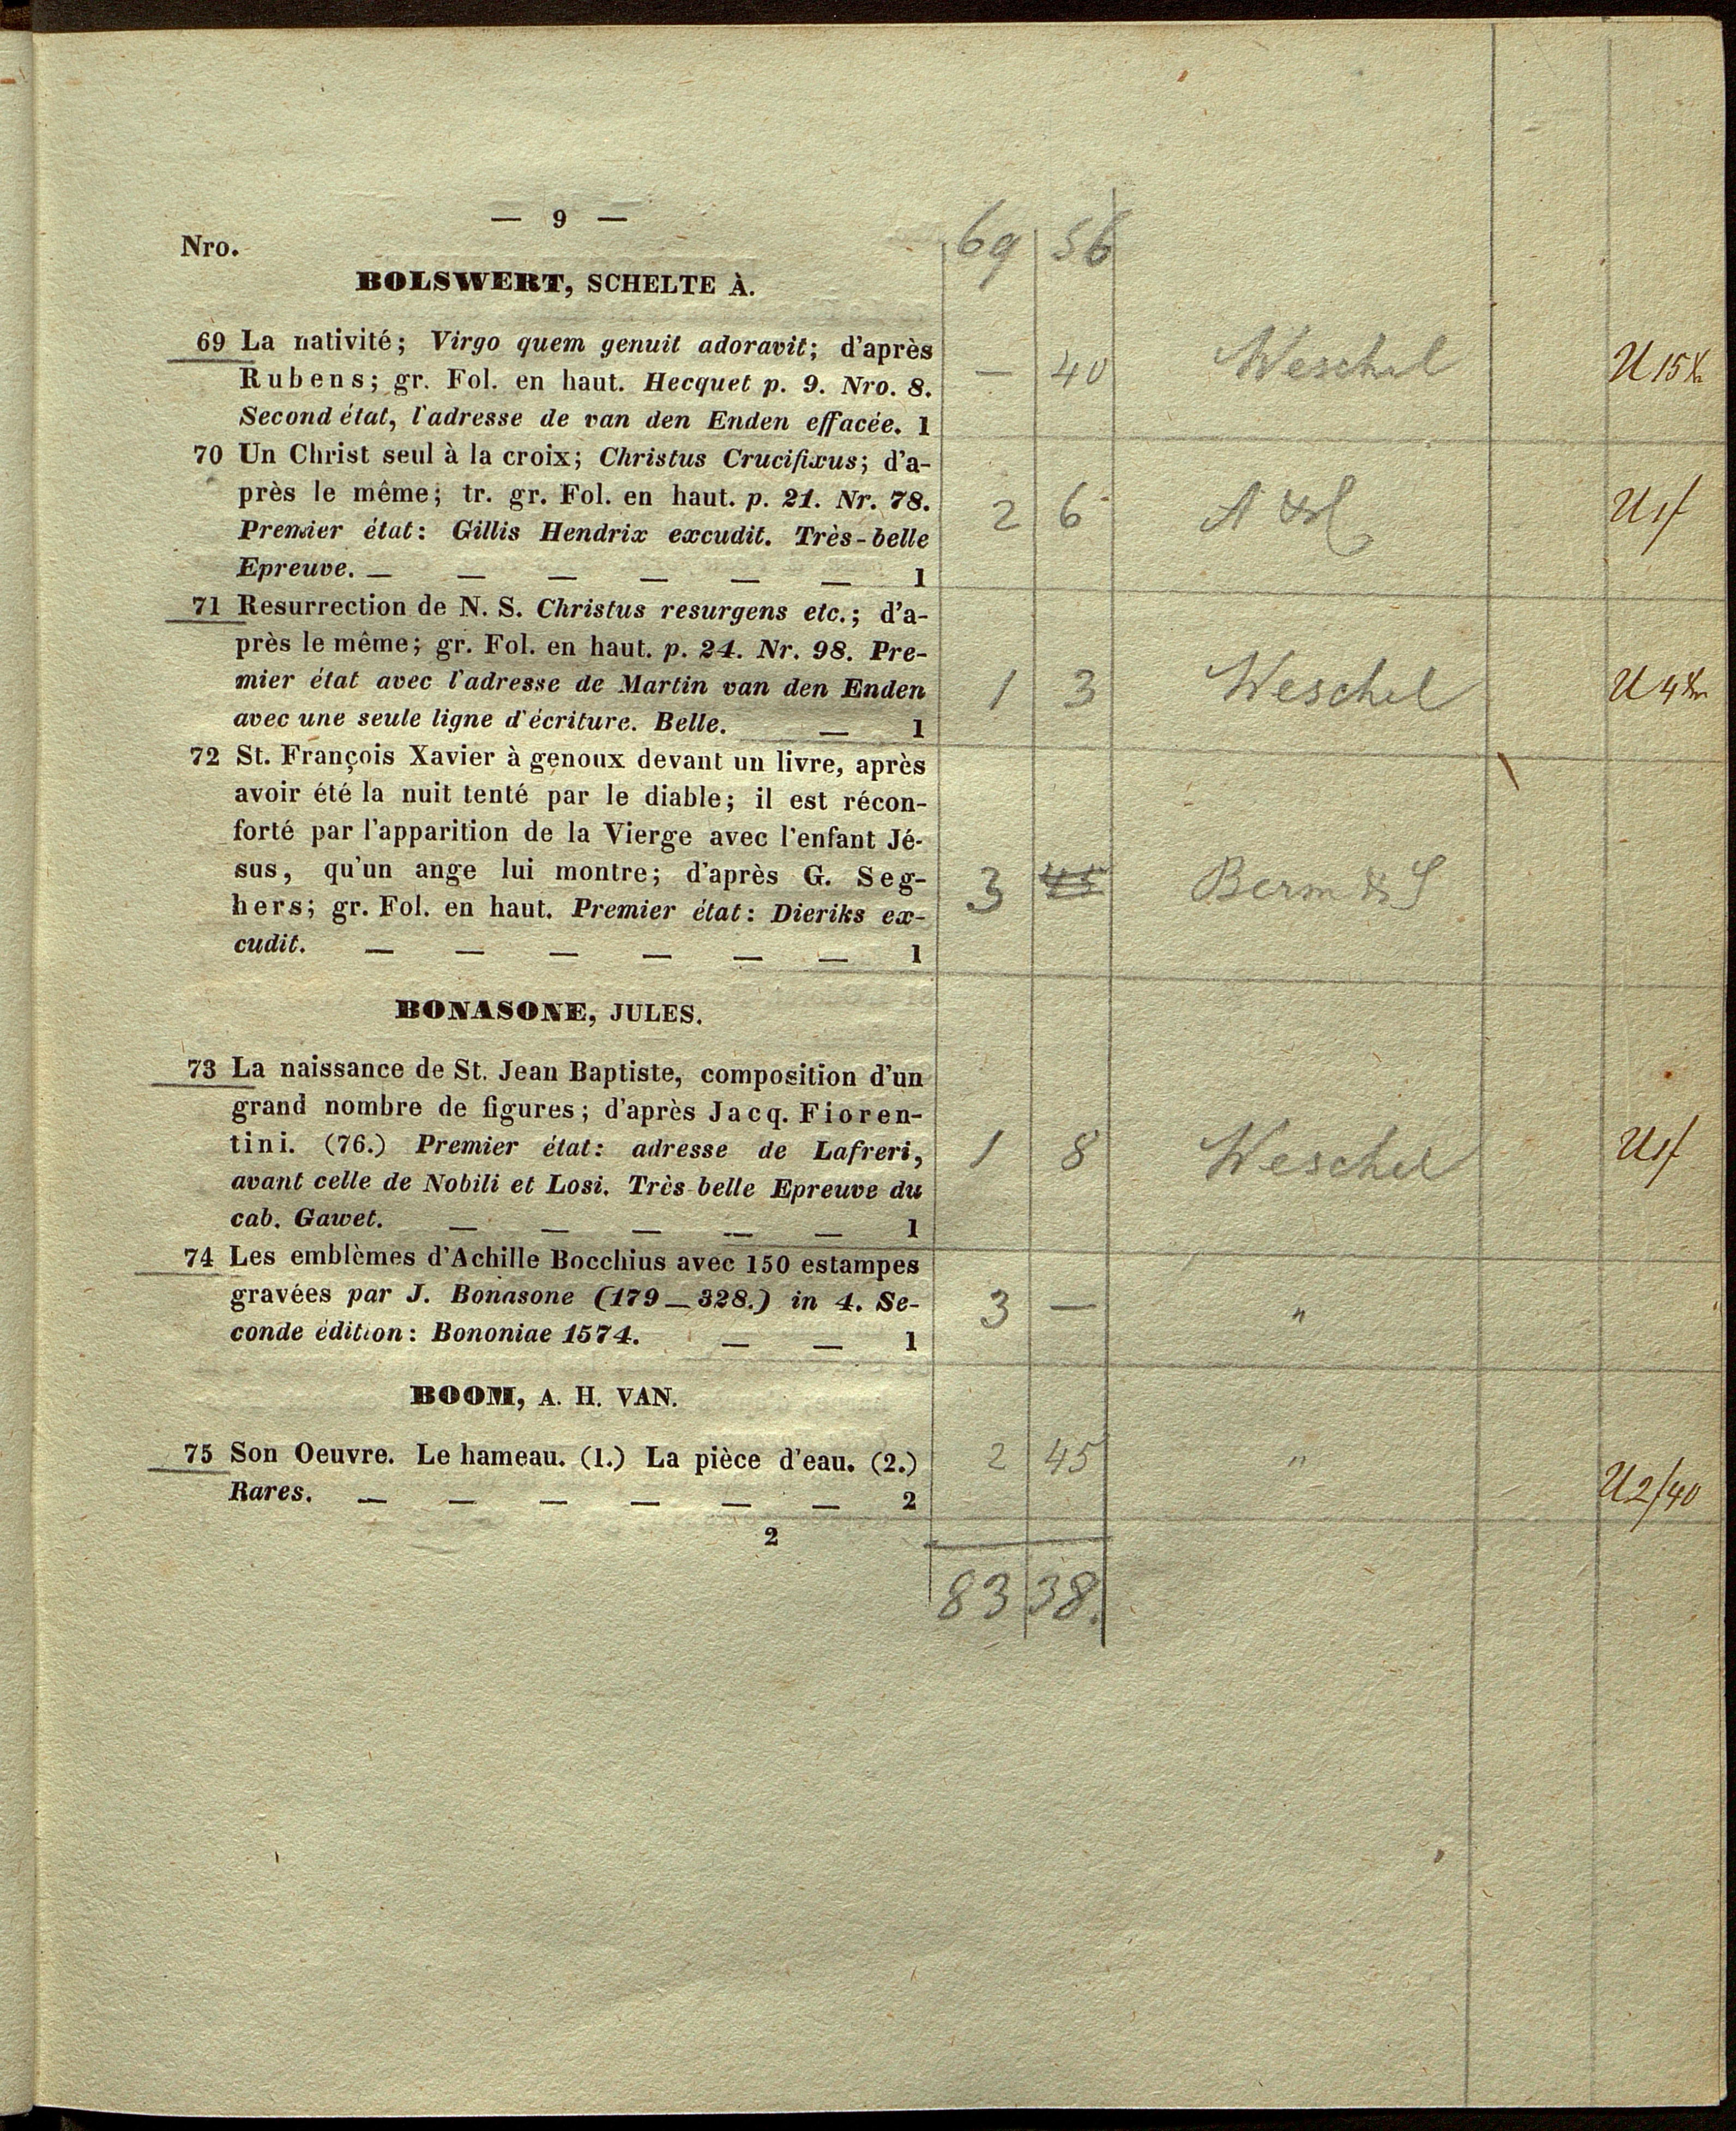 — 9 —
69 56
Nro.
BOLSWERT, SCHELTE À.
69 La nativité; Virgo quem genuit adoravit; d'après
Rubens; gr. Fol. en haut. Hecquet p. 9. Nro. 8.
Second état, l'adresse de van den Enden effacée. 1
— 40 Weschel U 15 Xr
70 Un Christ seul à la croix; Christus Crucifixus; d'a-
près le même; tr. gr. Fol. en haut. p. 21. Nr. 78.
Premier état: Gillis Hendrix excudit. Très-belle
Epreuve. — — — — — — 1
2 6 U 1f
71 Resurrection de N. S. Christus resurgens etc.; d'a-
près le même; gr. Fol. en haut. p. 24. Nr. 98. Pre-
mier état avec l'adresse de Martin van den Enden
avec une seule ligne d'écriture. Belle. — 1
1 3 Weschel U 4 Xr
72 St. François Xavier à genoux devant un livre, après
avoir été la nuit tenté par le diable; il est récon-
forté par l'apparition de la Vierge avec l'enfant Jé-
sus, qu'un ange lui montre; d'après G. Seg-
hers; gr. Fol. en haut. Premier état: Dieriks ex-
cudit. — — — — — — 1
3 45 Berm & S
BONASONE, JULES.
73 La naissance de St. Jean Baptiste, composition d'un
grand nombre de figures; d'après Jacq. Fioren-
tini. (76.) Premier état: adresse de Lafreri,
avant celle de Nobili et Losi. Très-belle Epreuve du
cab. Gawet. — — — — — 1
1 8 Weschel U 1f
74 Les emblèmes d'Achille Bocchius avec 150 estampes
gravées par J. Bonasone (179—328.) in 4. Se-
conde édition: Bononiae 1574. — — 1
3 — "
BOOM, A. H. VAN.
75 Son Oeuvre. Le hameau. (1.) La pièce d'eau. (2.)
Rares. — — — — — — 2
2 45 " U 2/40
2
83 38.